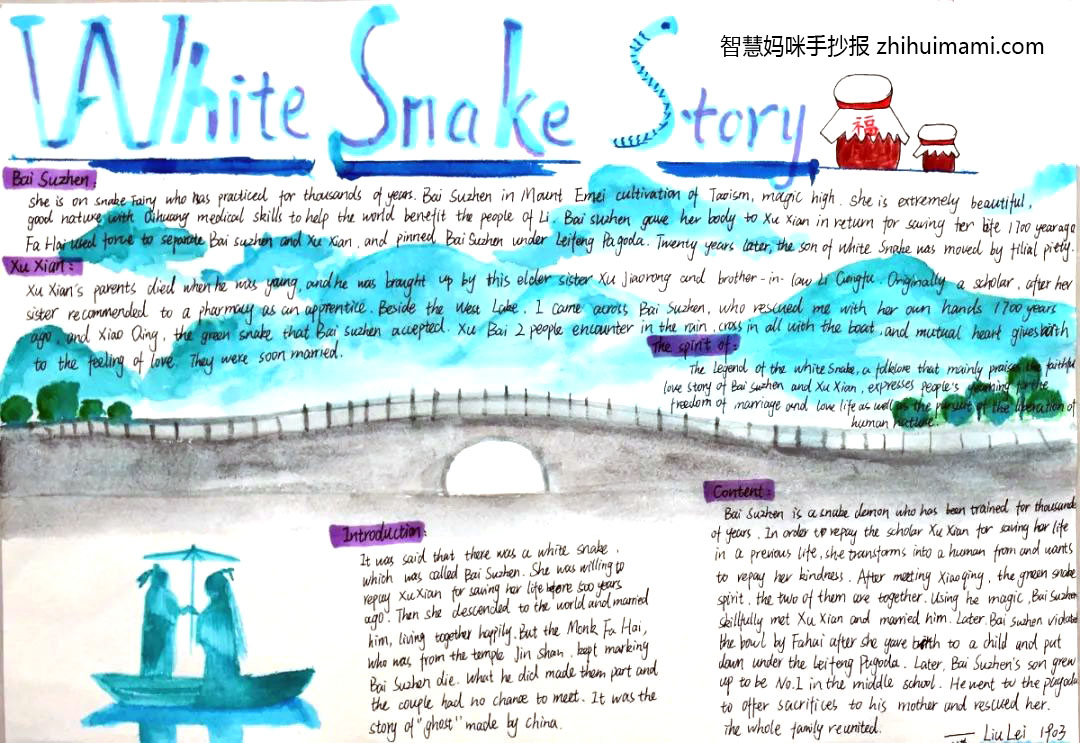 White Snake Story
智慧妈咪手抄报 zhihuimami.com
福
Bai Suzhen:
She is on snake Fairy who has practiced for thousands of years. Bai Suzhen in Mount Emei cultivation of Taoism, magic high. She is extremely beautiful,
good nature with Qihuang medical skills to help the world benefit the people of Li. Bai suzhen gave her body to Xu Xian in return for saving her life 1700 year ago
Fa Hai used force to separate Bai suzhen and Xu Xian, and pinned Bai Suzhen under Leifeng Pagoda. Twenty years later, the son of white Snake was moved by filial pitty.
Xu Xian:
Xu Xian's parents died when he was young, and he was brought up by this elder sister Xu Jiaorong and brother-in-law Li Gongfu. Originally a scholar, after her
sister recommended to a pharmacy as an apprentice. Beside the West Lake. I came across Bai Suzhen, who rescued me with her own hands 1700 years
ago, and Xiao Qing, the green snake that Bai suzhen accepted. Xu Bai 2 people encounter in the rain, cross in all with the boat, and mutual heart gives birth
to the feeling of love. They were soon married.
The spirit of:
The Legend of the white Snake, a folklore that mainly praises the faithful
love story of Bai suzhen and Xu Xian, expresses people's yearning for the
freedom of marriage and love life as well as the pursuit of the liberation of
human nature.
Introduction:
It was said that there was a white snake,
which was called Bai Suzhen. She was willing to
repay Xu Xian for saving her life before 500 years
ago. Then she descended to the world and married
him, living together happily. But the Monk Fa Hai,
who was from the temple Jin Shan, kept marking
Bai Suzhen die. What he did made them part and
the couple had no chance to meet. It was the
story of "ghost" made by China.
Content:
Bai Suzhen is a snake demon who has been trained for thousands
of years. In order to repay the scholar Xu Xian for saving her life
in a previous life, she transforms into a human from and wants
to repay her kindness. After meeting Xiaoqing, the green snake
spirit, the two of them are together. Using he magic, Bai Suzhen
skillfully met Xu Xian and married him. Later, Bai Suzhen violated
the bowl by Fahai after she gave birth to a child and put
down under the Leifeng Pagoda. Later, Bai Suzhen's son grew
up to be No.1 in the middle school. He went to the pagoda
to offer sacrifices to his mother and rescued her.
The whole family reunited.
Liu Lei 1903